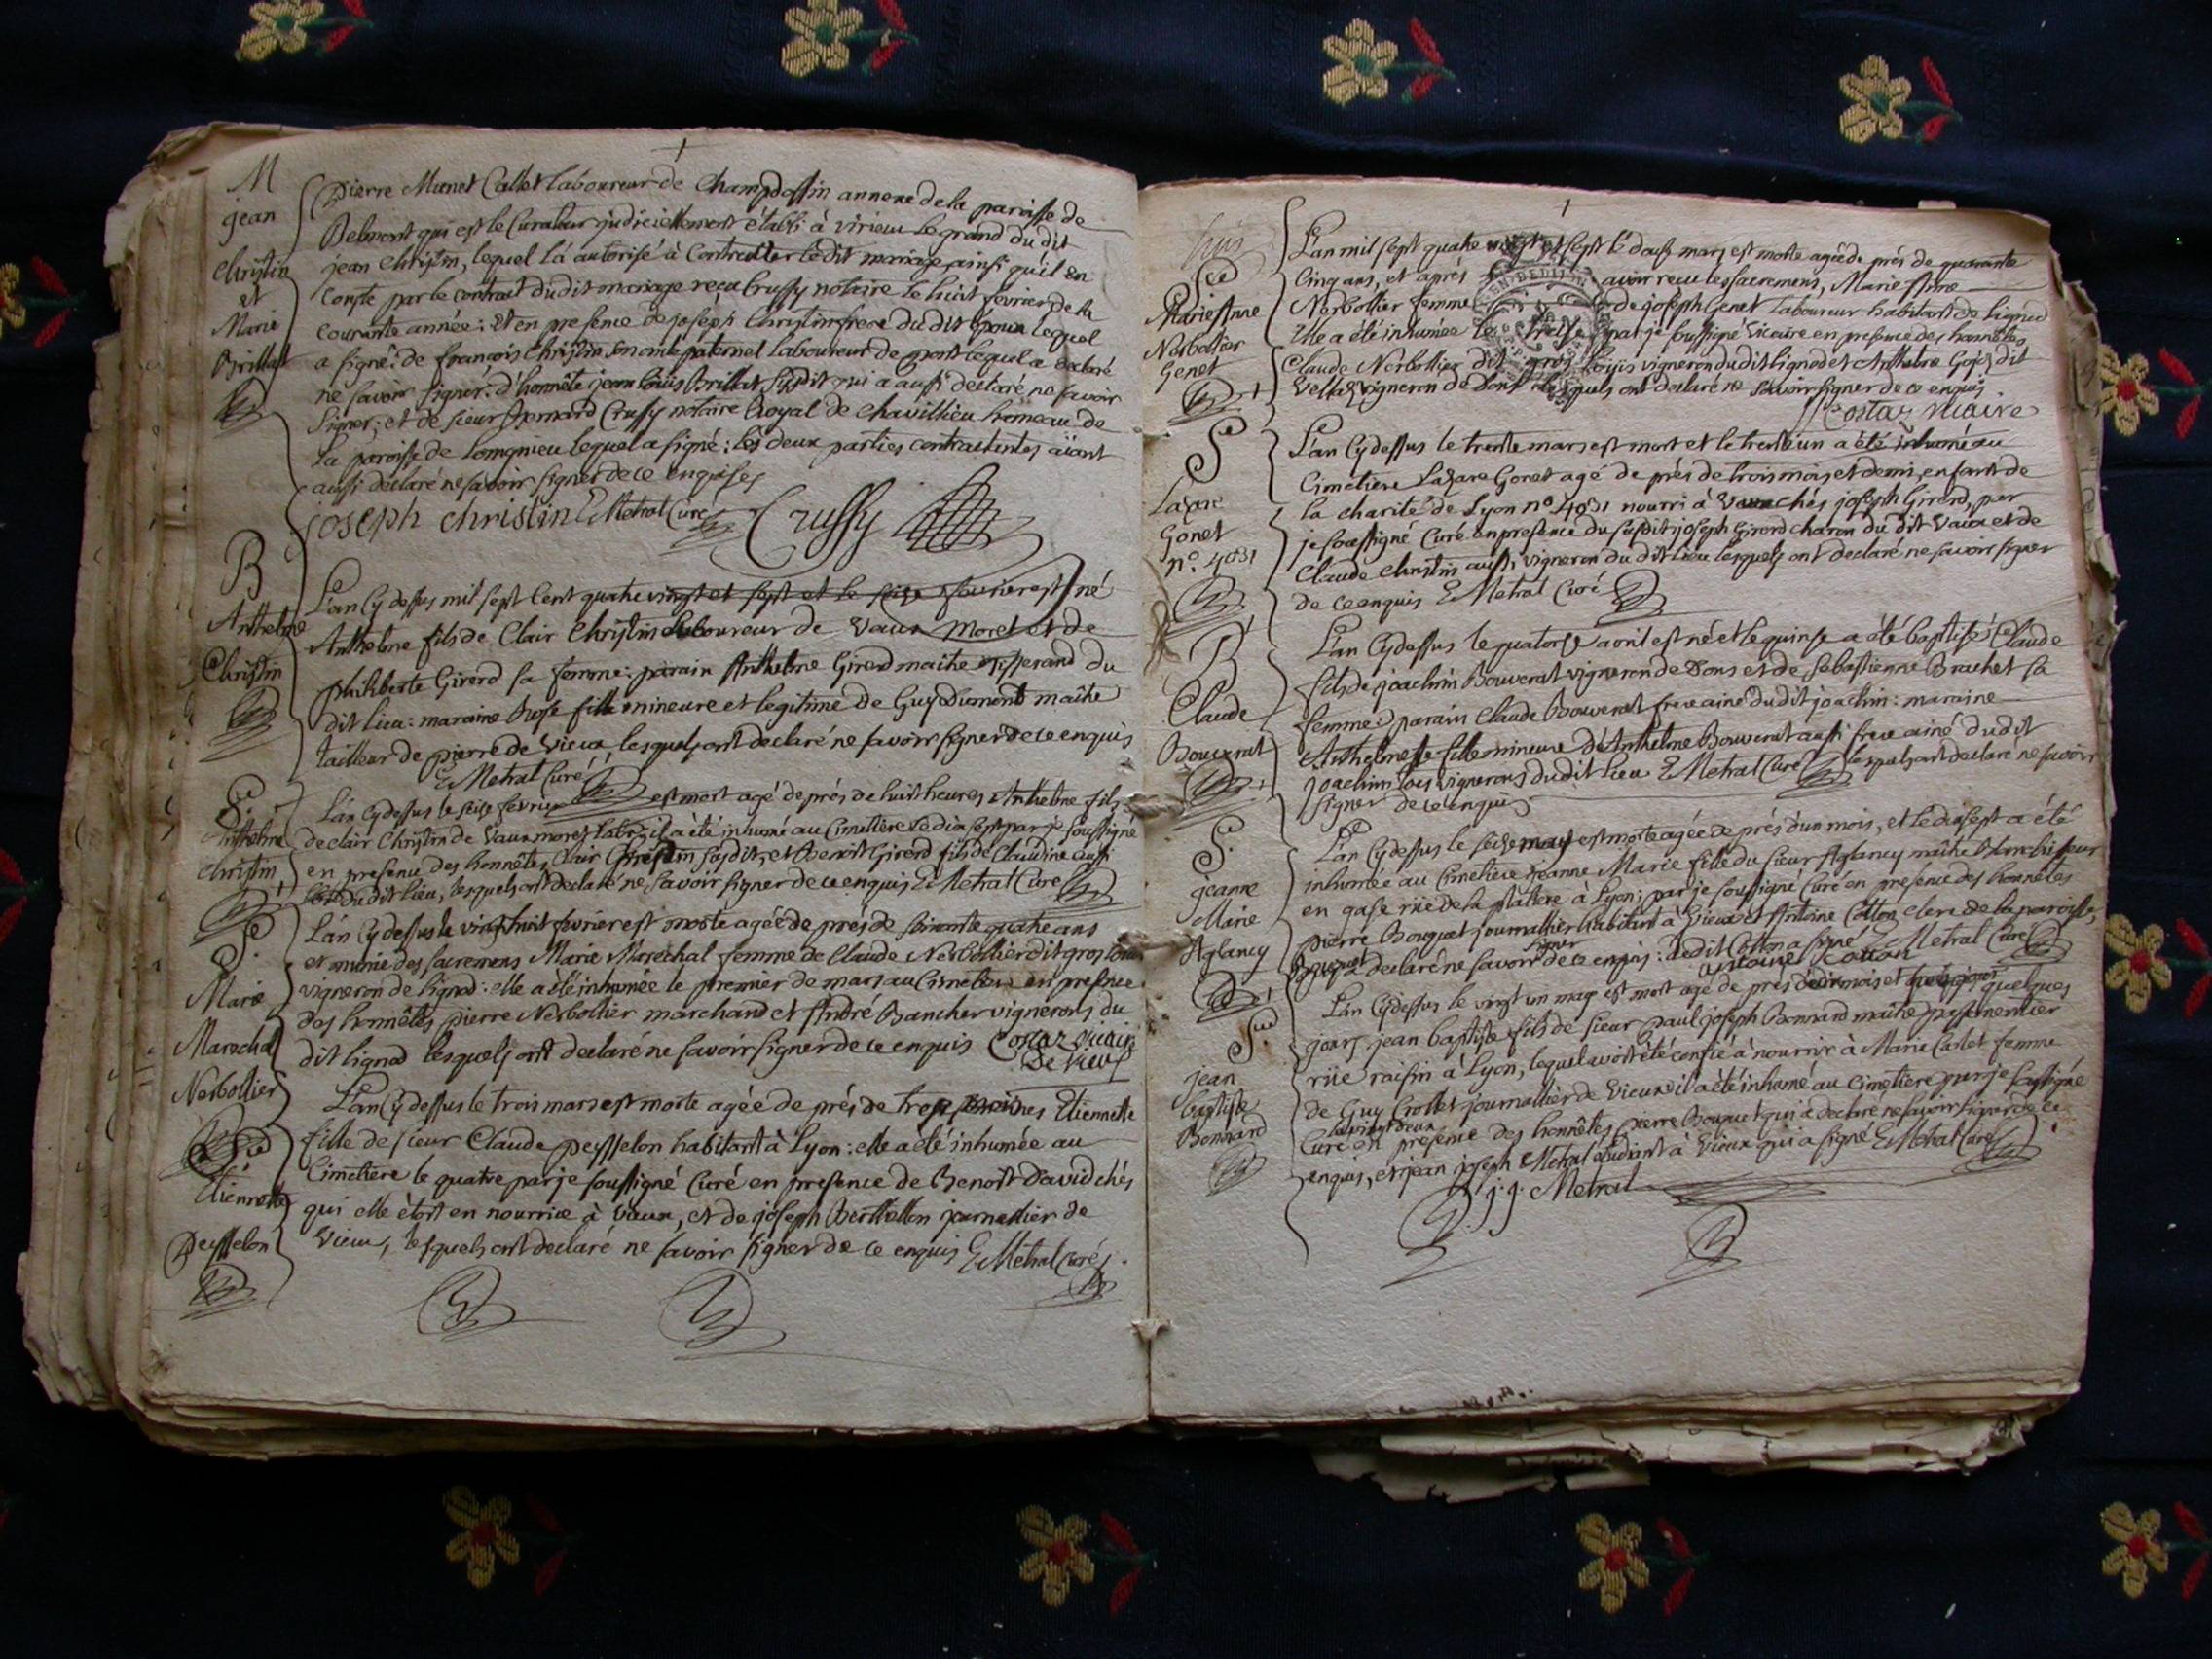 M
jean
Christin
et
Marie
Brillat
Pierre Munet Callet laboureur de Champdossin annexe de la paroisse de
Belmont qui est le Curateur judiciellement établi à virieu le grand du dit
jean Christin, lequel l'a autorisé à Contracter le dit mariage ainsi qu'il en
conste par le contrat du dit mariage reçu Crussy notaire le huit fevrier de la
courante année: et en presence de joseph Christin frere du dit époux lequel
a signé: de françois Christin son oncle paternel laboureur de lequel a declaré
ne savoir signer. d'honnête jean louis Brillat susdit qui a aussi declaré ne savoir
signer; et de sieur Bernard Crussy notaire Royal de Chavillieu hameau de
la paroisse de Lompnieu lequel a signé: les deux parties contractantes aïant
aussi déclaré ne savoir signer de ce enquises
joseph christin E Metral Curé Crussy
B
Anthelme
Christin
L'an cy dessus mil sept Cent quatre vingt et sept et le seize fevrier est né
Anthelme fils de Clair Christin laboureur de Vaux Moret et de
philiberte Girerd sa femme: parain Anthelme Girerd maitre tisserand du
dit lieu: maraine Rose fille mineure et legitime de Guy Dumont maitre
tailleur de pierre de Vieux, lesquels ont déclaré ne savoir signer de ce enquis
E Metral Curé
S.re
Anthelme
Christin
L'an cy dessus le seize fevrier est mort agé de prés de huit heures Anthelme fils
de clair Christin de Vaux moret lab.r; il a été inhumé au Cimetiere le dix sept par je soussigné
en presence des honnêtes Clair Christin susdit, et Benoit Girerd fils de Claudine aussi
lab.r du dit lieu, lesquels ont declaré ne savoir signer de ce enquis E Metral Curé
S.re
Marie
Marechal
Nerbollier
L'an cy dessus le vingt huit fevrier est morte agée de prés de soixante quatre ans
et munie des sacremens Marie Marechal femme de Claude Nerbollier dit gros louis
vigneron de lignod: elle a été inhumée le premier de mars au Cimetiere en presence
des honnêtes pierre Nerbollier marchand et André Bancher vignerons du
dit lignod lesquels ont declaré ne savoir signer de ce enquis Costaz vicaire
de Vieux
S.re
Etiennette
Peysselon
L'an cy dessus le trois mars est morte agée de prés de Etiennette
fille de sieur Claude peysselon habitant à Lyon: elle a été inhumée au
Cimetiere le quatre par je soussigné Curé en presence de Benoit David chés
qui elle étoit en nourrice à vieux, et de joseph Berthellon journallier de
Vieux, lesquels ont declaré ne savoir signer de ce enquis E Metral Curé
S.re
Marie Anne
Nerbollier
Genet
L'an mil sept quatre vingt et sept le douze mars est morte agée de prés de quarante
cinq ans, et aprés avoir reçu les sacremens, Marie Anne
Nerbollier femme de joseph Genet laboureur habitant de lignod
Elle a été inhumée le treize par je soussigné Vicaire en presence des honnêtes
Claude Nerbollier dit gros louis vigneron du dit lignod et Anthelme dit
vigneron de Dons lesquels ont declaré ne savoir signer de ce enquis
Costaz vicaire
S.re
Lazare
Gonet
n.o 4031
L'an cy dessus le trente mars est mort et le trente un a été inhumé au
Cimetiere Lazare Gonet agé de prés de trois mois et demi, enfant de
la charité de Lyon no. 4031 nourri à Vaux chés joseph Girerd, par
je soussigné Curé en presence du susdit joseph Girerd charon du dit Vaux et de
Claude Christin aussi vigneron du dit lieu lesquels ont declaré ne savoir signer
de ce enquis E Metral Curé
B
Claude
Bouverat
L'an cy dessus le quatorze avril est né et le quinse a été baptisé Claude
fils de joachim Bouverat vigneron de Dons et de Sebastienne Brachet sa
femme: parain Claude Bouverat frere ainé du dit joachim: maraine
Anthelmette fille mineure d'Anthelme Bouverat aussi frere ainé du dit
joachim tous vignerons du dit lieu E Metral Curé lesquels ont declaré ne savoir
signer de ce enquis
S.
jeanne
Marie
Aglancy
L'an cy dessus le seize may est morte agée de prés d'un mois, et le dix sept a été
inhumée au Cimetiere jeanne Marie fille du sieur Aglancy maitre blanchisseur
en gase rüe de la platiere à Lyon; par je soussigné Curé en presence des honnêtes
pierre Bouquet journallier habitant à Vieux et Antoine Cotton clerc de la paroisse,
Bouquet a declaré ne savoir signer de ce enquis: le dit Cotton a signé E Metral Curé
antoine cotton
S.re
jean
baptiste
Bonnard
L'an cy dessus le vingt un may est mort agé de prés de et quelques
jours jean baptiste fils de sieur paul joseph Bonnard maitre passementier
rüe raisin à Lyon, lequel avoit été confié à nourrir à Marie Carlet femme
de Guy Crollet journallier de Vieux: il a été inhumé au cimetiere par je soussigné
Curé le vingt deux en presence des honnêtes pierre Bouquet qui a declaré ne savoir signer de ce
enquis, et jean joseph Metral etudiant à Vieux qui a signé E Metral Curé
j. j. Metral